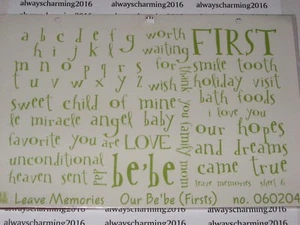 alwayscharming2016 alwayscharming2016 alwayscharming2016
a b c d e f g worth FIRST
h i j k l waiting
m n o p q r s for smile tooth
t u v w x y z wish holiday visit
thank you family mom
sweet child of mine bath foods
le miracle angel baby i love you
favorite you are LOVE our hopes
unconditional and dreams
heaven sent be·be came true
leave memories sheet 6
Leave Memories Our Be'be (Firsts) no. 060204
alwayscharming2016 alwayscharming2016 alwayscharming2016